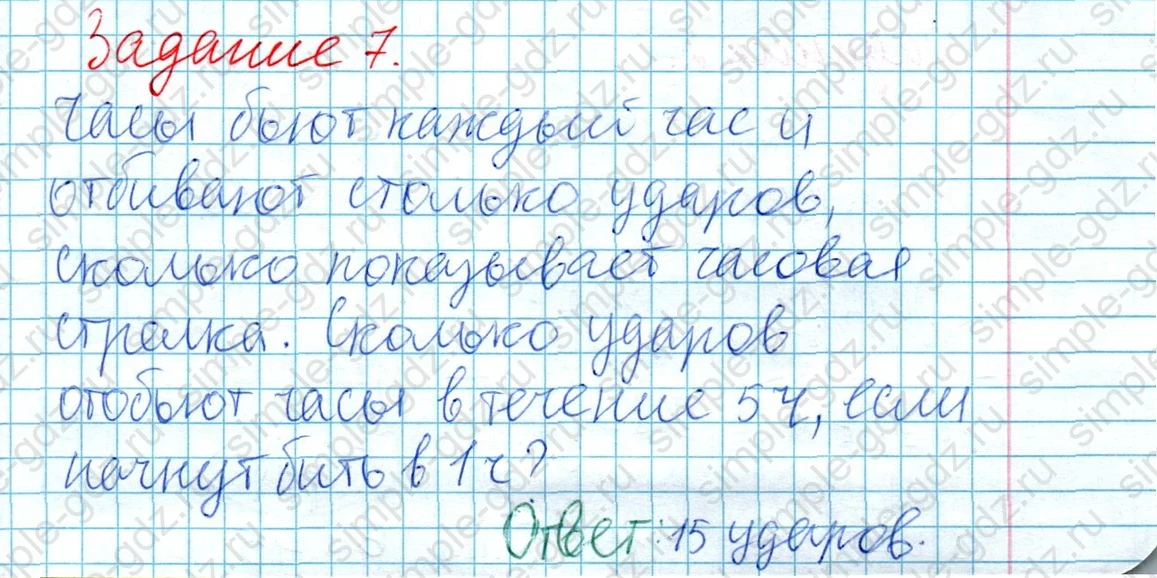 Задание 7.
Часы бьют каждый час и
отбивают столько ударов,
сколько показывает часовая
стрелка. Сколько ударов
отобьют часы в течение 5 ч, если
начнут бить в 1 ч?
Ответ: 15 ударов.